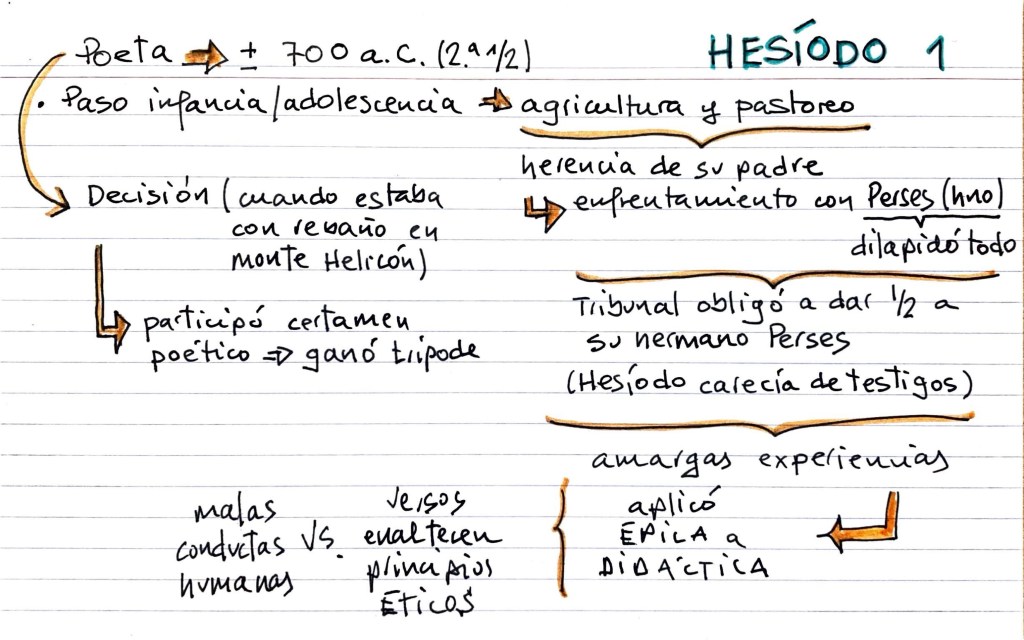 HESÍODO 1
Poeta → ± 700 a.C. (2.ª 1/2)
• Paso infancia/adolescencia → agricultura y pastoreo
herencia de su padre
enfrentamiento con Perses (hno)
dilapidó todo
Tribunal obligó a dar 1/2 a
su hermano Perses
(Hesíodo carecía de testigos)
amargas experiencias
Decisión (cuando estaba
con rebaño en
monte Helicón)
participó certamen
poético ⇒ ganó trípode
aplicó
ÉPICA a
DIDÁCTICA
versos
enaltecen
principios
ÉTICOS
vs.
malas
conductas
humanas